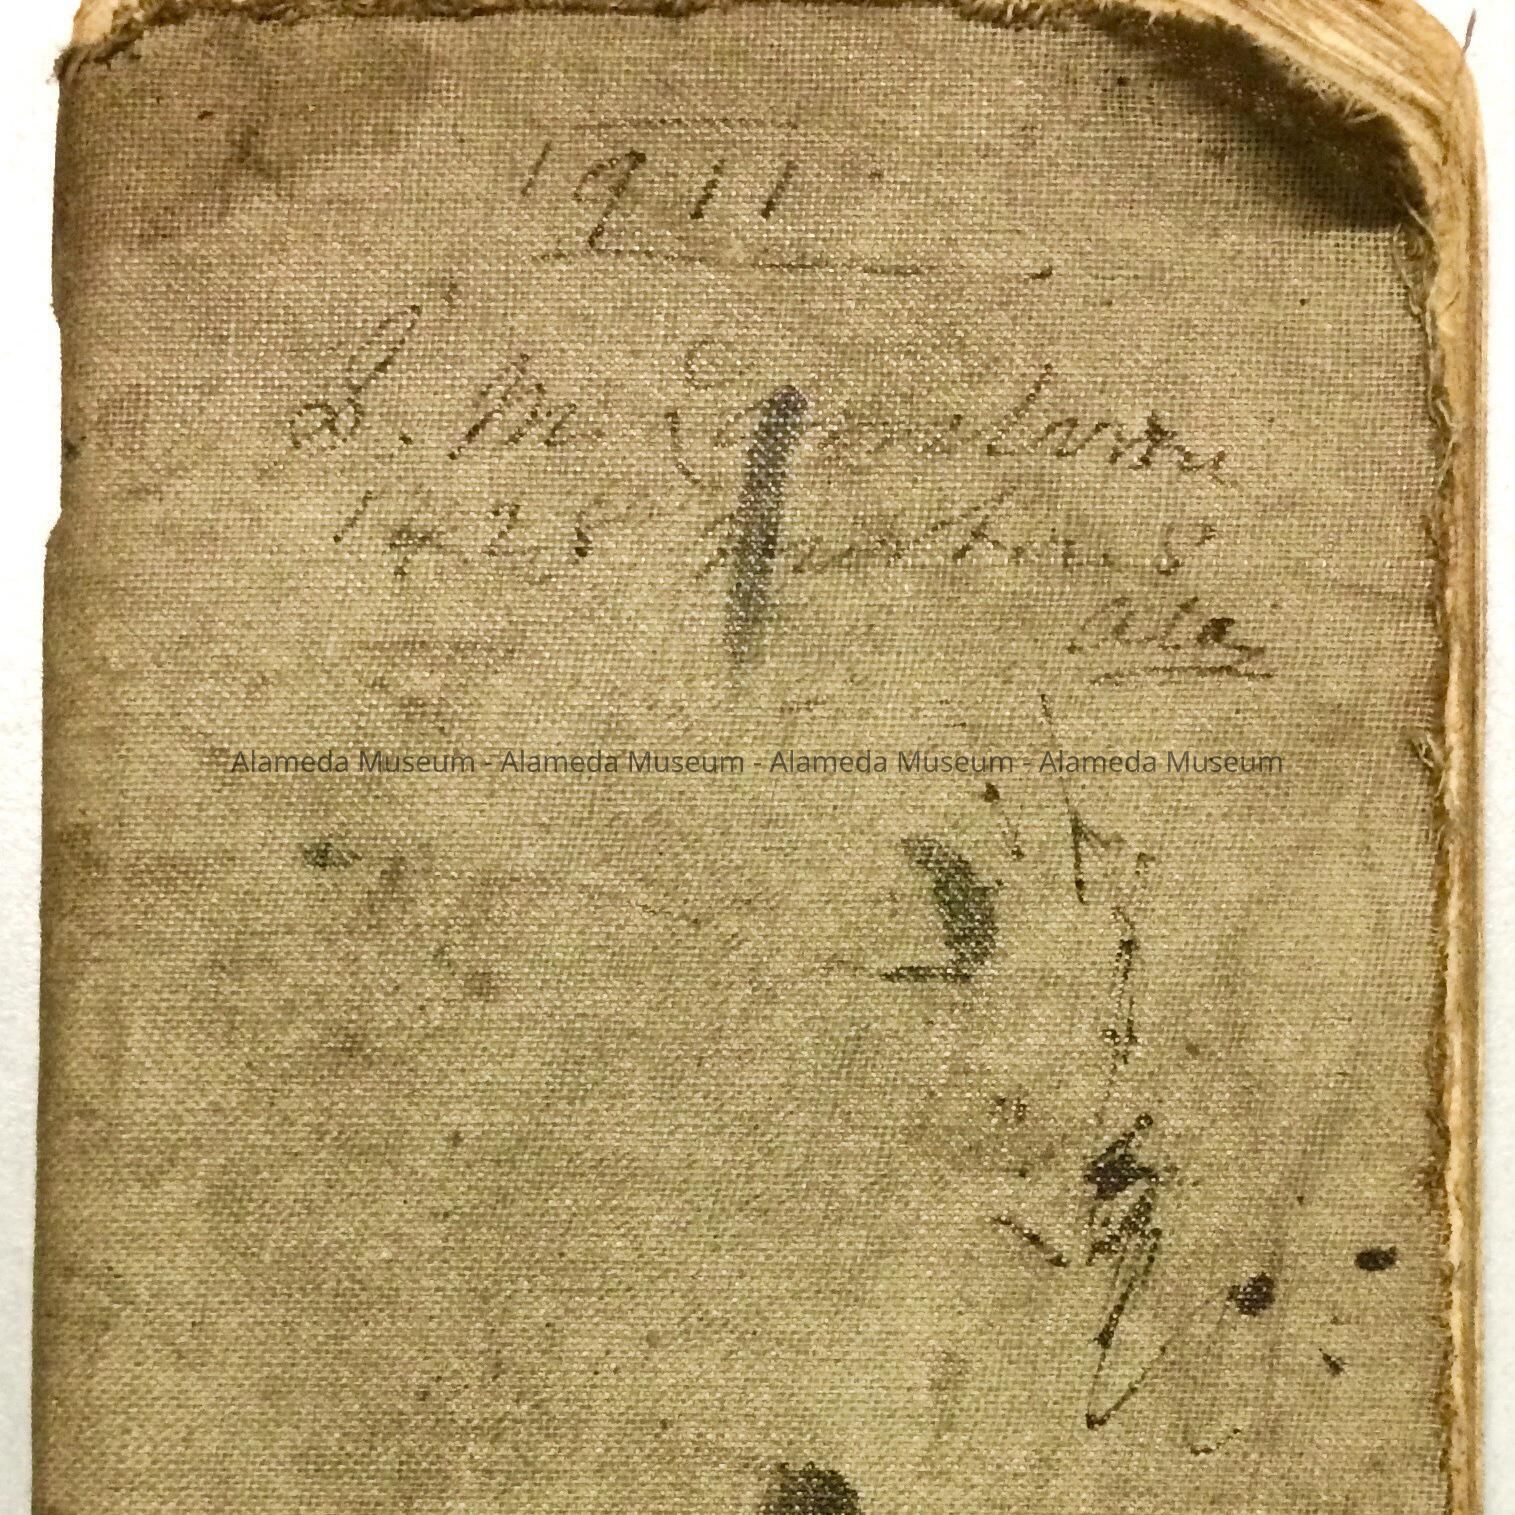 1911
S. M.
1425 S
Ala
Alameda Museum - Alameda Museum - Alameda Museum - Alameda Museum